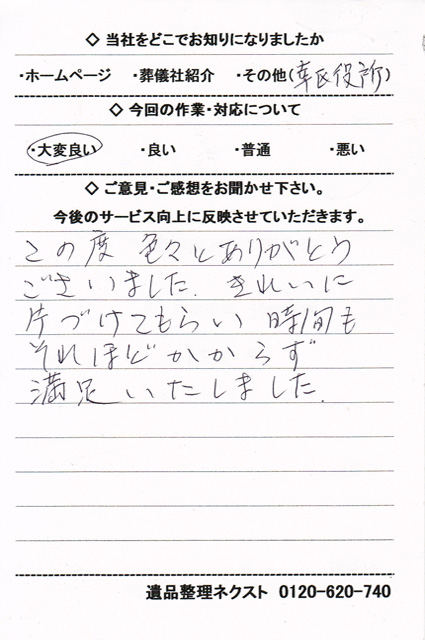 ◇ 当社をどこでお知りになりましたか
・ホームページ ・葬儀社紹介 ・その他(幸区役所)
◇ 今回の作業・対応について
・大変良い ・良い ・普通 ・悪い
◇ ご意見・ご感想をお聞かせ下さい。
今後のサービス向上に反映させていただきます。
この度 色々とありがとう
ございました. きれいに
片づけてもらい 時間も
それほどかからず
満足いたしました.
遺品整理ネクスト 0120-620-740